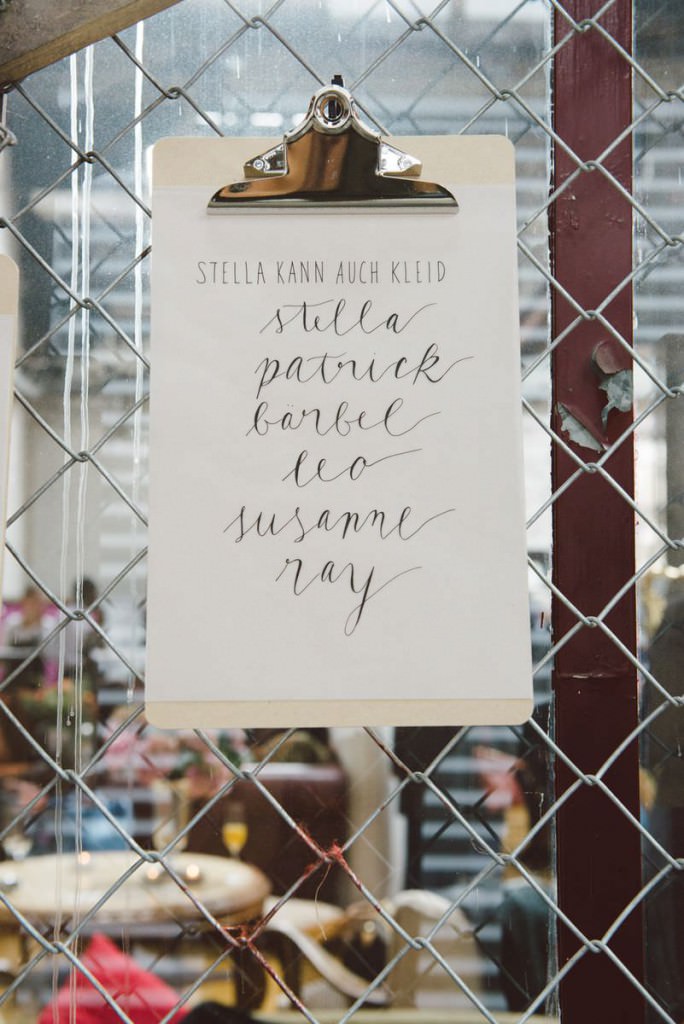 STELLA KANN AUCH KLEID
stella
patrick
bärbel
leo
susanne
ray